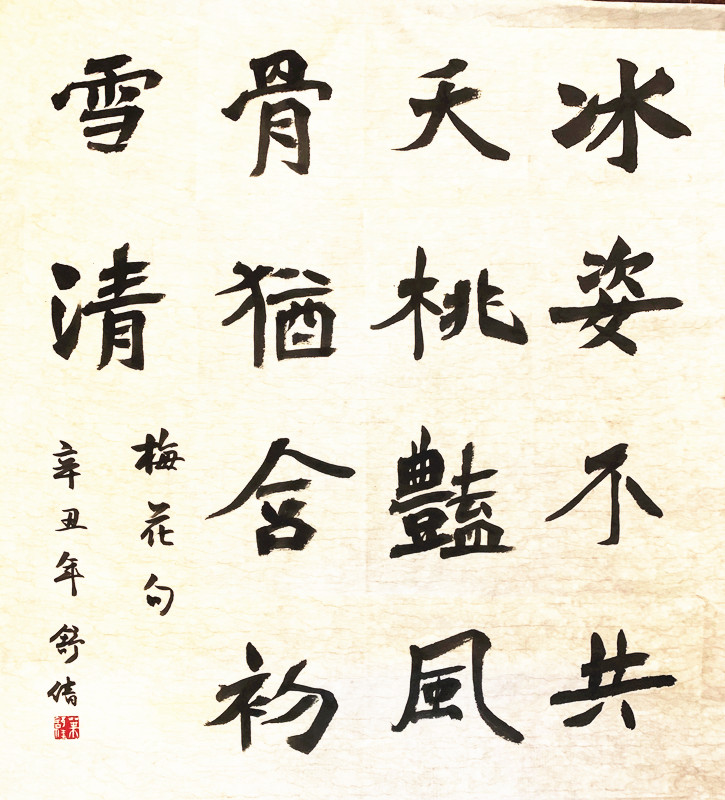 冰姿不共
夭桃豔風
骨猶含初
雪清
梅花句
辛丑年舒倩